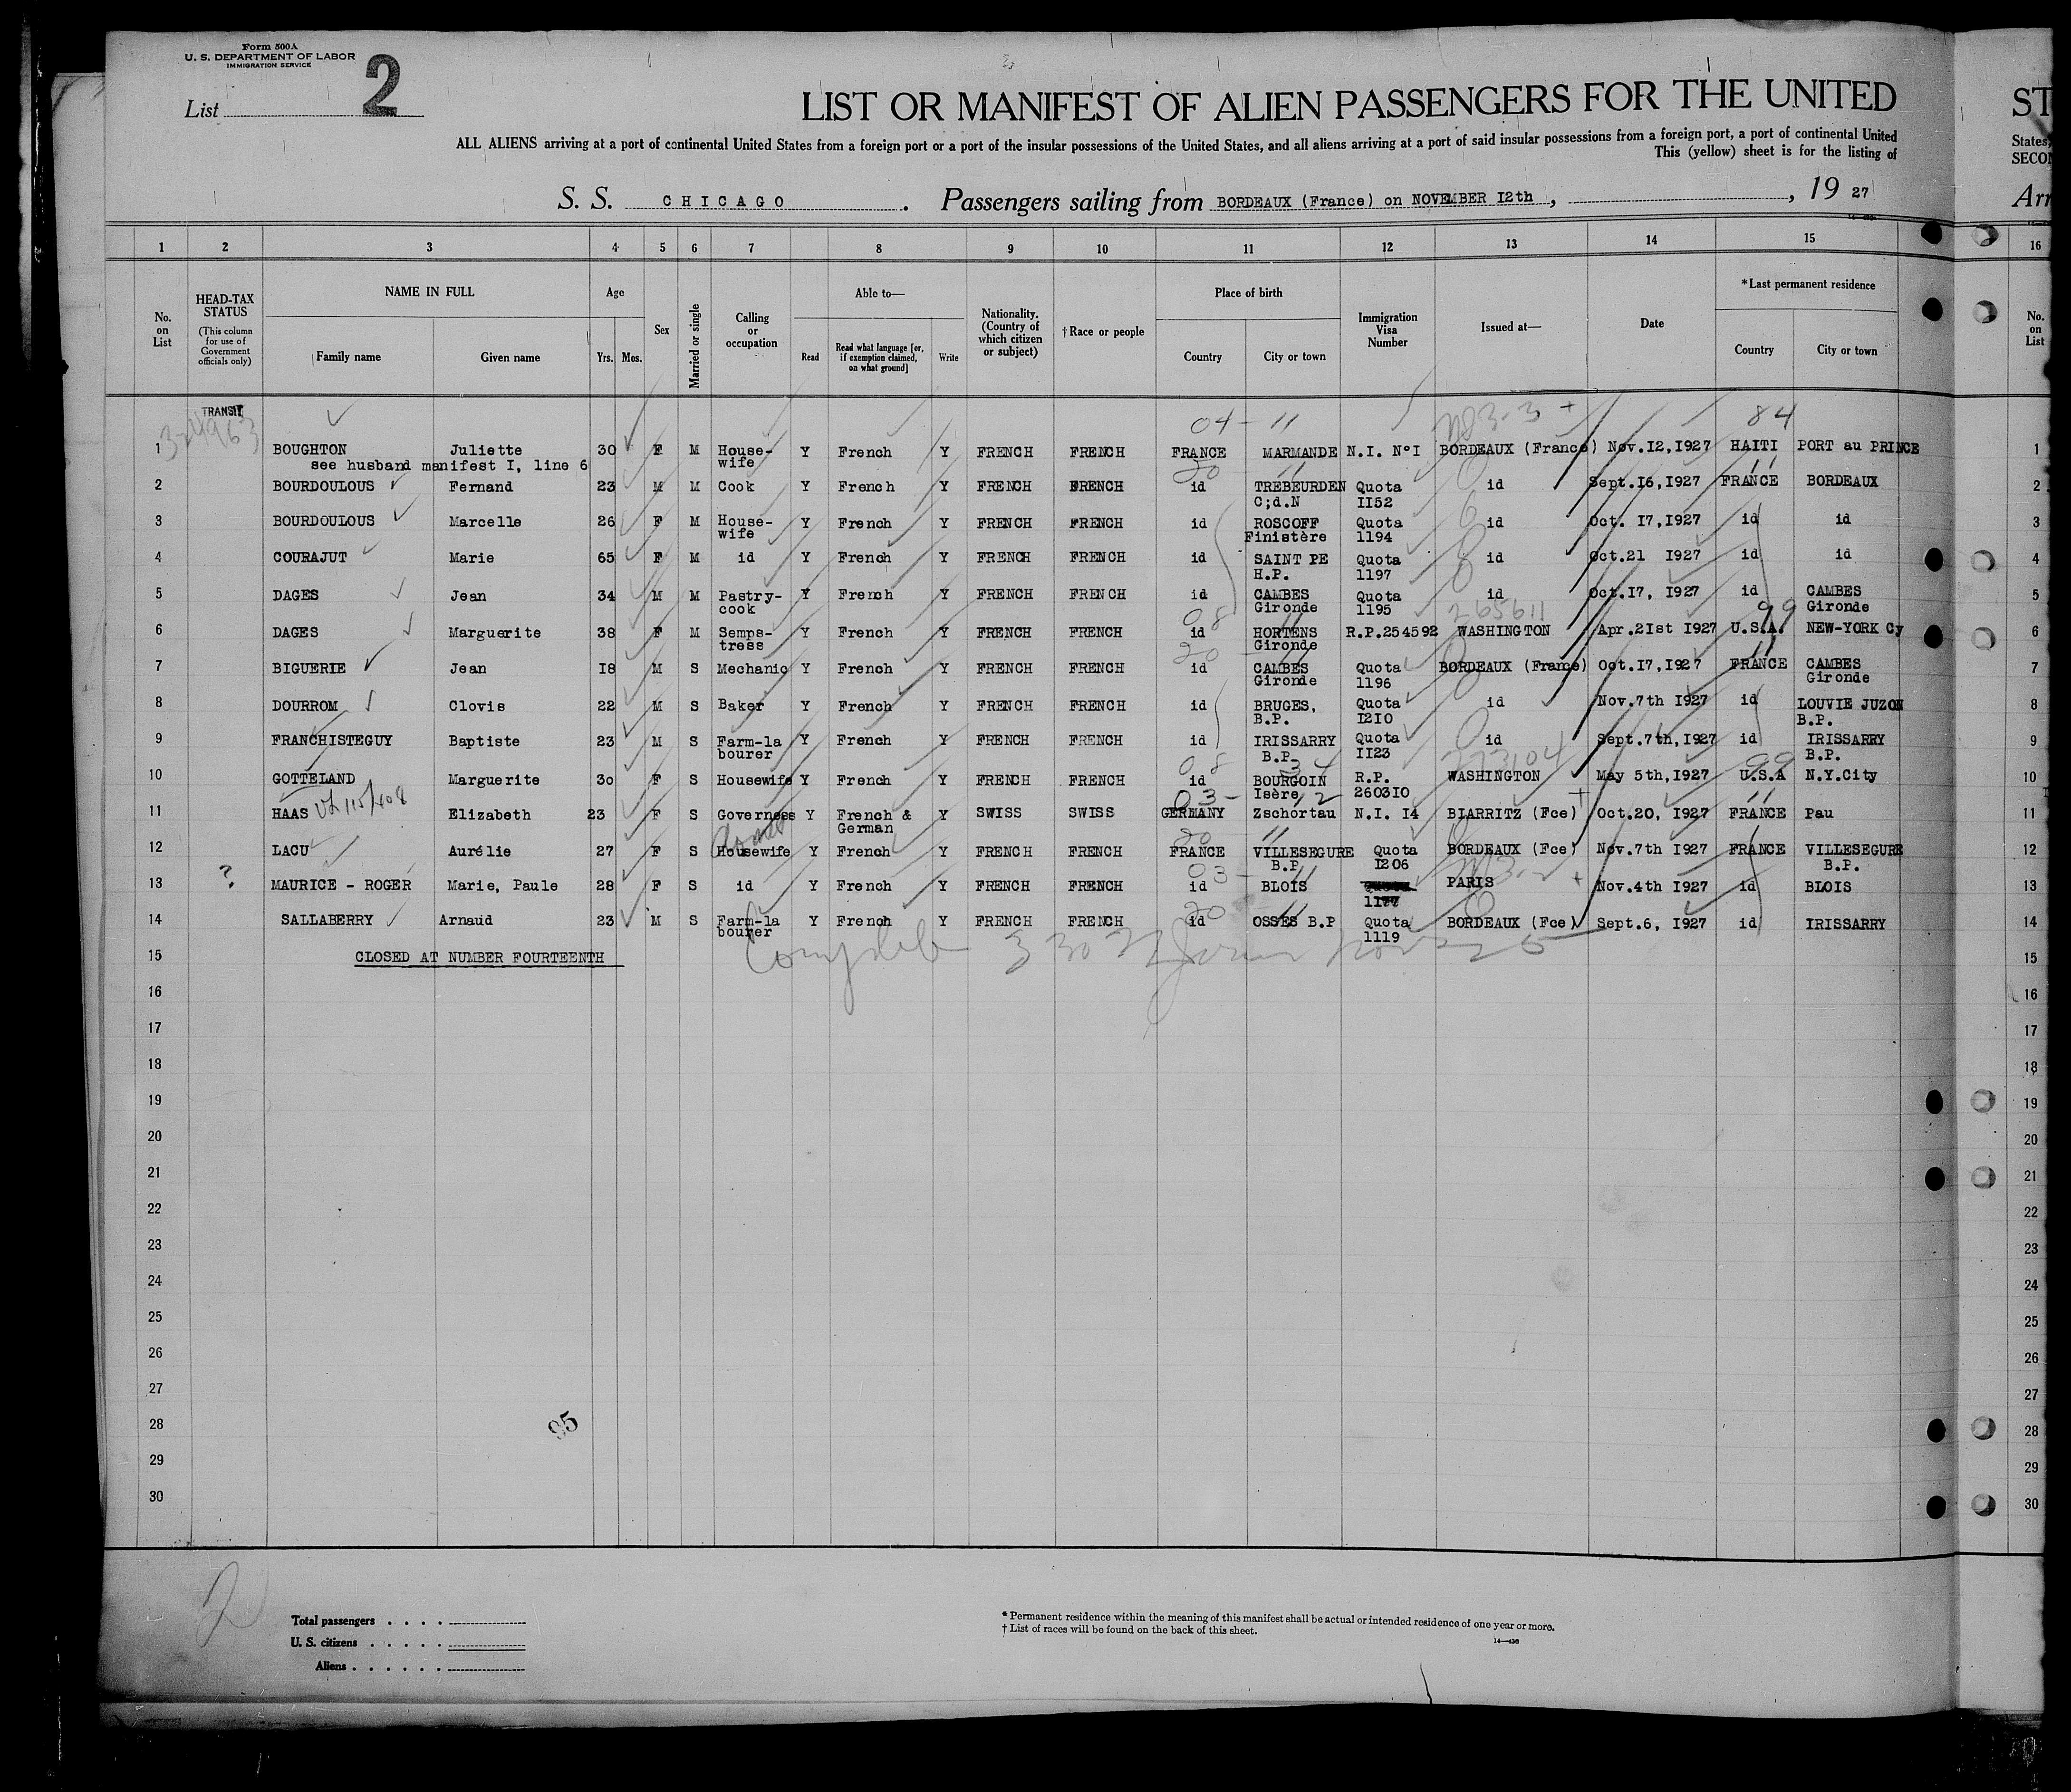 Form 500A
U. S. DEPARTMENT OF LABOR
IMMIGRATION SERVICE
List 2
LIST OR MANIFEST OF ALIEN PASSENGERS FOR THE UNITED
ALL ALIENS arriving at a port of continental United States from a foreign port or a port of the insular possessions of the United States, and all aliens arriving at a port of said insular possessions from a foreign port, a port of continental United
This (yellow) sheet is for the listing of
S. S. CHICAGO. Passengers sailing from BORDEAUX (France) on NOVEMBER I2th, , 19 27
ST
States,
SECO
Arr
1 2 3 4 5 6 7 8 9 10 11 12 13 14 15 16
No. on List
HEAD-TAX STATUS
(This column for use of Government officials only)
NAME IN FULL
Family name Given name
Age
Yrs. Mos.
Sex
Married or single
Calling or occupation
Able to—
Read
Read what language [or, if exemption claimed, on what ground]
Write
Nationality. (Country of which citizen or subject)
†Race or people
Place of birth
Country City or town
Immigration Visa Number
Issued at—
Date
*Last permanent residence
Country City or town
No. on List
TRANSIT 04 - 11 84
1 BOUGHTON Juliette 30 F M House- Y French Y FRENCH FRENCH FRANCE MARMANDE N.I. N°I BORDEAUX (France) Nov.I2,I927 HAITI PORT au PRINCE 1
see husband manifest I, line 6 wife
2 BOURDOULOUS Fernand 23 M M Cook Y French Y FRENCH FRENCH id TREBEURDEN Quota id Sept.I6,I927 FRANCE BORDEAUX 2
C;d.N II52
3 BOURDOULOUS Marcelle 26 F M House- Y French Y FRENCH FRENCH id ROSCOFF Quota id Oct. I7,I927 id id 3
wife Finistère 1194
4 COURAJUT Marie 65 F M id Y French Y FRENCH FRENCH id SAINT PE Quota id Oct.21 I927 id id 4
H.P. 1197
5 DAGES Jean 34 M M Pastry- Y French Y FRENCH FRENCH id CAMBES Quota id Oct.I7, I927 id CAMBES 5
cook Gironde 1195 265611 Gironde
6 DAGES Marguerite 38 F M Semps- Y French Y FRENCH FRENCH id HORTENS R.P.254592 WASHINGTON Apr.2Ist I927 U.S.A. NEW-YORK Cy 6
tress Gironde
7 BIGUERIE Jean I8 M S Mechanic Y French Y FRENCH FRENCH id CAMBES Quota BORDEAUX (France) Oct.I7,I927 FRANCE CAMBES 7
Gironde 1196 Gironde
8 DOURROM Clovis 22 M S Baker Y French Y FRENCH FRENCH id BRUGES, Quota id Nov.7th I927 id LOUVIE JUZON 8
B.P. I2I0 B.P.
9 FRANCHISTEGUY Baptiste 23 M S Farm-la Y French Y FRENCH FRENCH id IRISSARRY Quota id Sept.7th,I927 id IRISSARRY 9
bourer B.P. II23 B.P.
10 GOTTELAND Marguerite 3o F S Housewife Y French Y FRENCH FRENCH id BOURGOIN R.P. WASHINGTON May 5th,I927 U.S.A N.Y.City 10
Isère 2603I0
11 HAAS Elizabeth 23 F S Governess Y French & Y SWISS SWISS GERMANY Zschortau N.I. I4 BIARRITZ (Fce) Oct.20, I927 FRANCE Pau 11
German
12 LACU Aurélie 27 F S Housewife Y French Y FRENCH FRENCH FRANCE VILLESEGURE Quota BORDEAUX (Fce) Nov.7th I927 FRANCE VILLESEGURE 12
B.P. I206 B.P.
13 ? MAURICE - ROGER Marie, Paule 28 F S id Y French Y FRENCH FRENCH id BLOIS PARIS Nov.4th I927 id BLOIS 13
14 SALLABERRY Arnaud 23 M S Farm-la Y French Y FRENCH FRENCH id OSSES B.P Quota BORDEAUX (Fce) Sept.6, I927 id IRISSARRY 14
bourer 1119
15 CLOSED AT NUMBER FOURTEENTH 15
16 16
17 17
18 18
19 19
20 20
21 21
22 22
23 23
24 24
25 25
26 26
27 27
28 95 28
29 29
30 30
2
Total passengers . . . .
U. S. citizens . . . . .
Aliens . . . . . .
* Permanent residence within the meaning of this manifest shall be actual or intended residence of one year or more.
† List of races will be found on the back of this sheet.